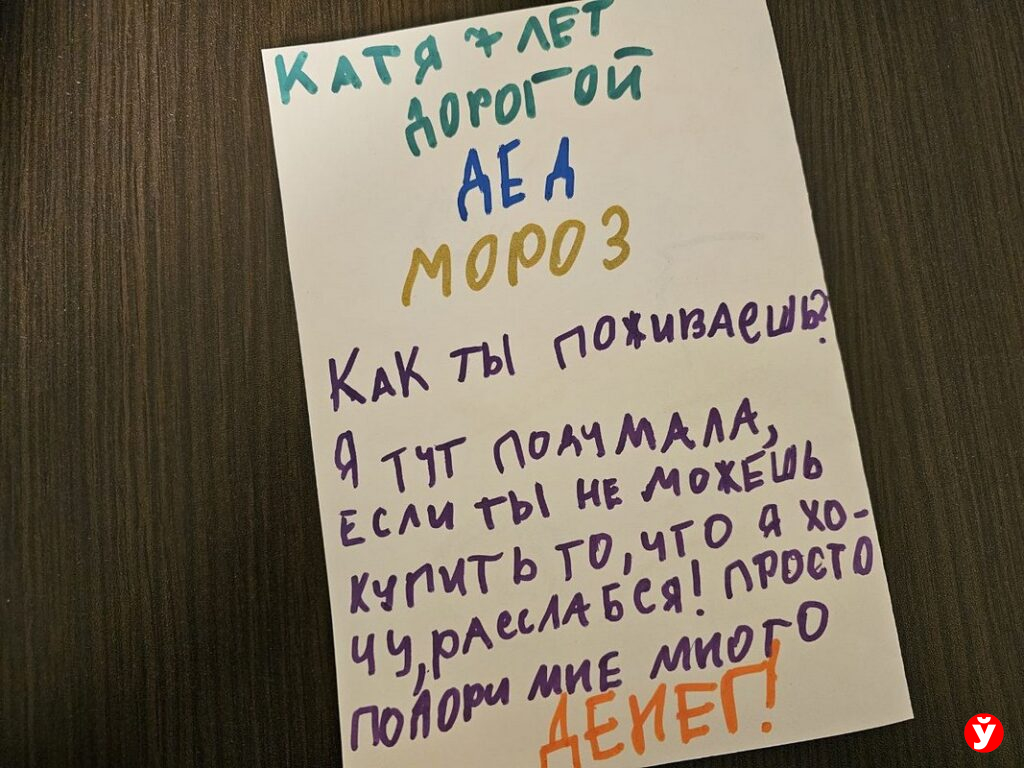 КАТЯ 7 ЛЕТ
ДОРОГОЙ
ДЕД
МОРОЗ
КАК ТЫ ПОЖИВАЕШЬ?
Я ТУТ ПОДУМАЛА,
ЕСЛИ ТЫ НЕ МОЖЕШЬ
КУПИТЬ ТО, ЧТО Я ХО-
ЧУ, РАССЛАБСЯ! ПРОСТО
ПОДОРИ МНЕ МНОГО
ДЕНЕГ!
Ў